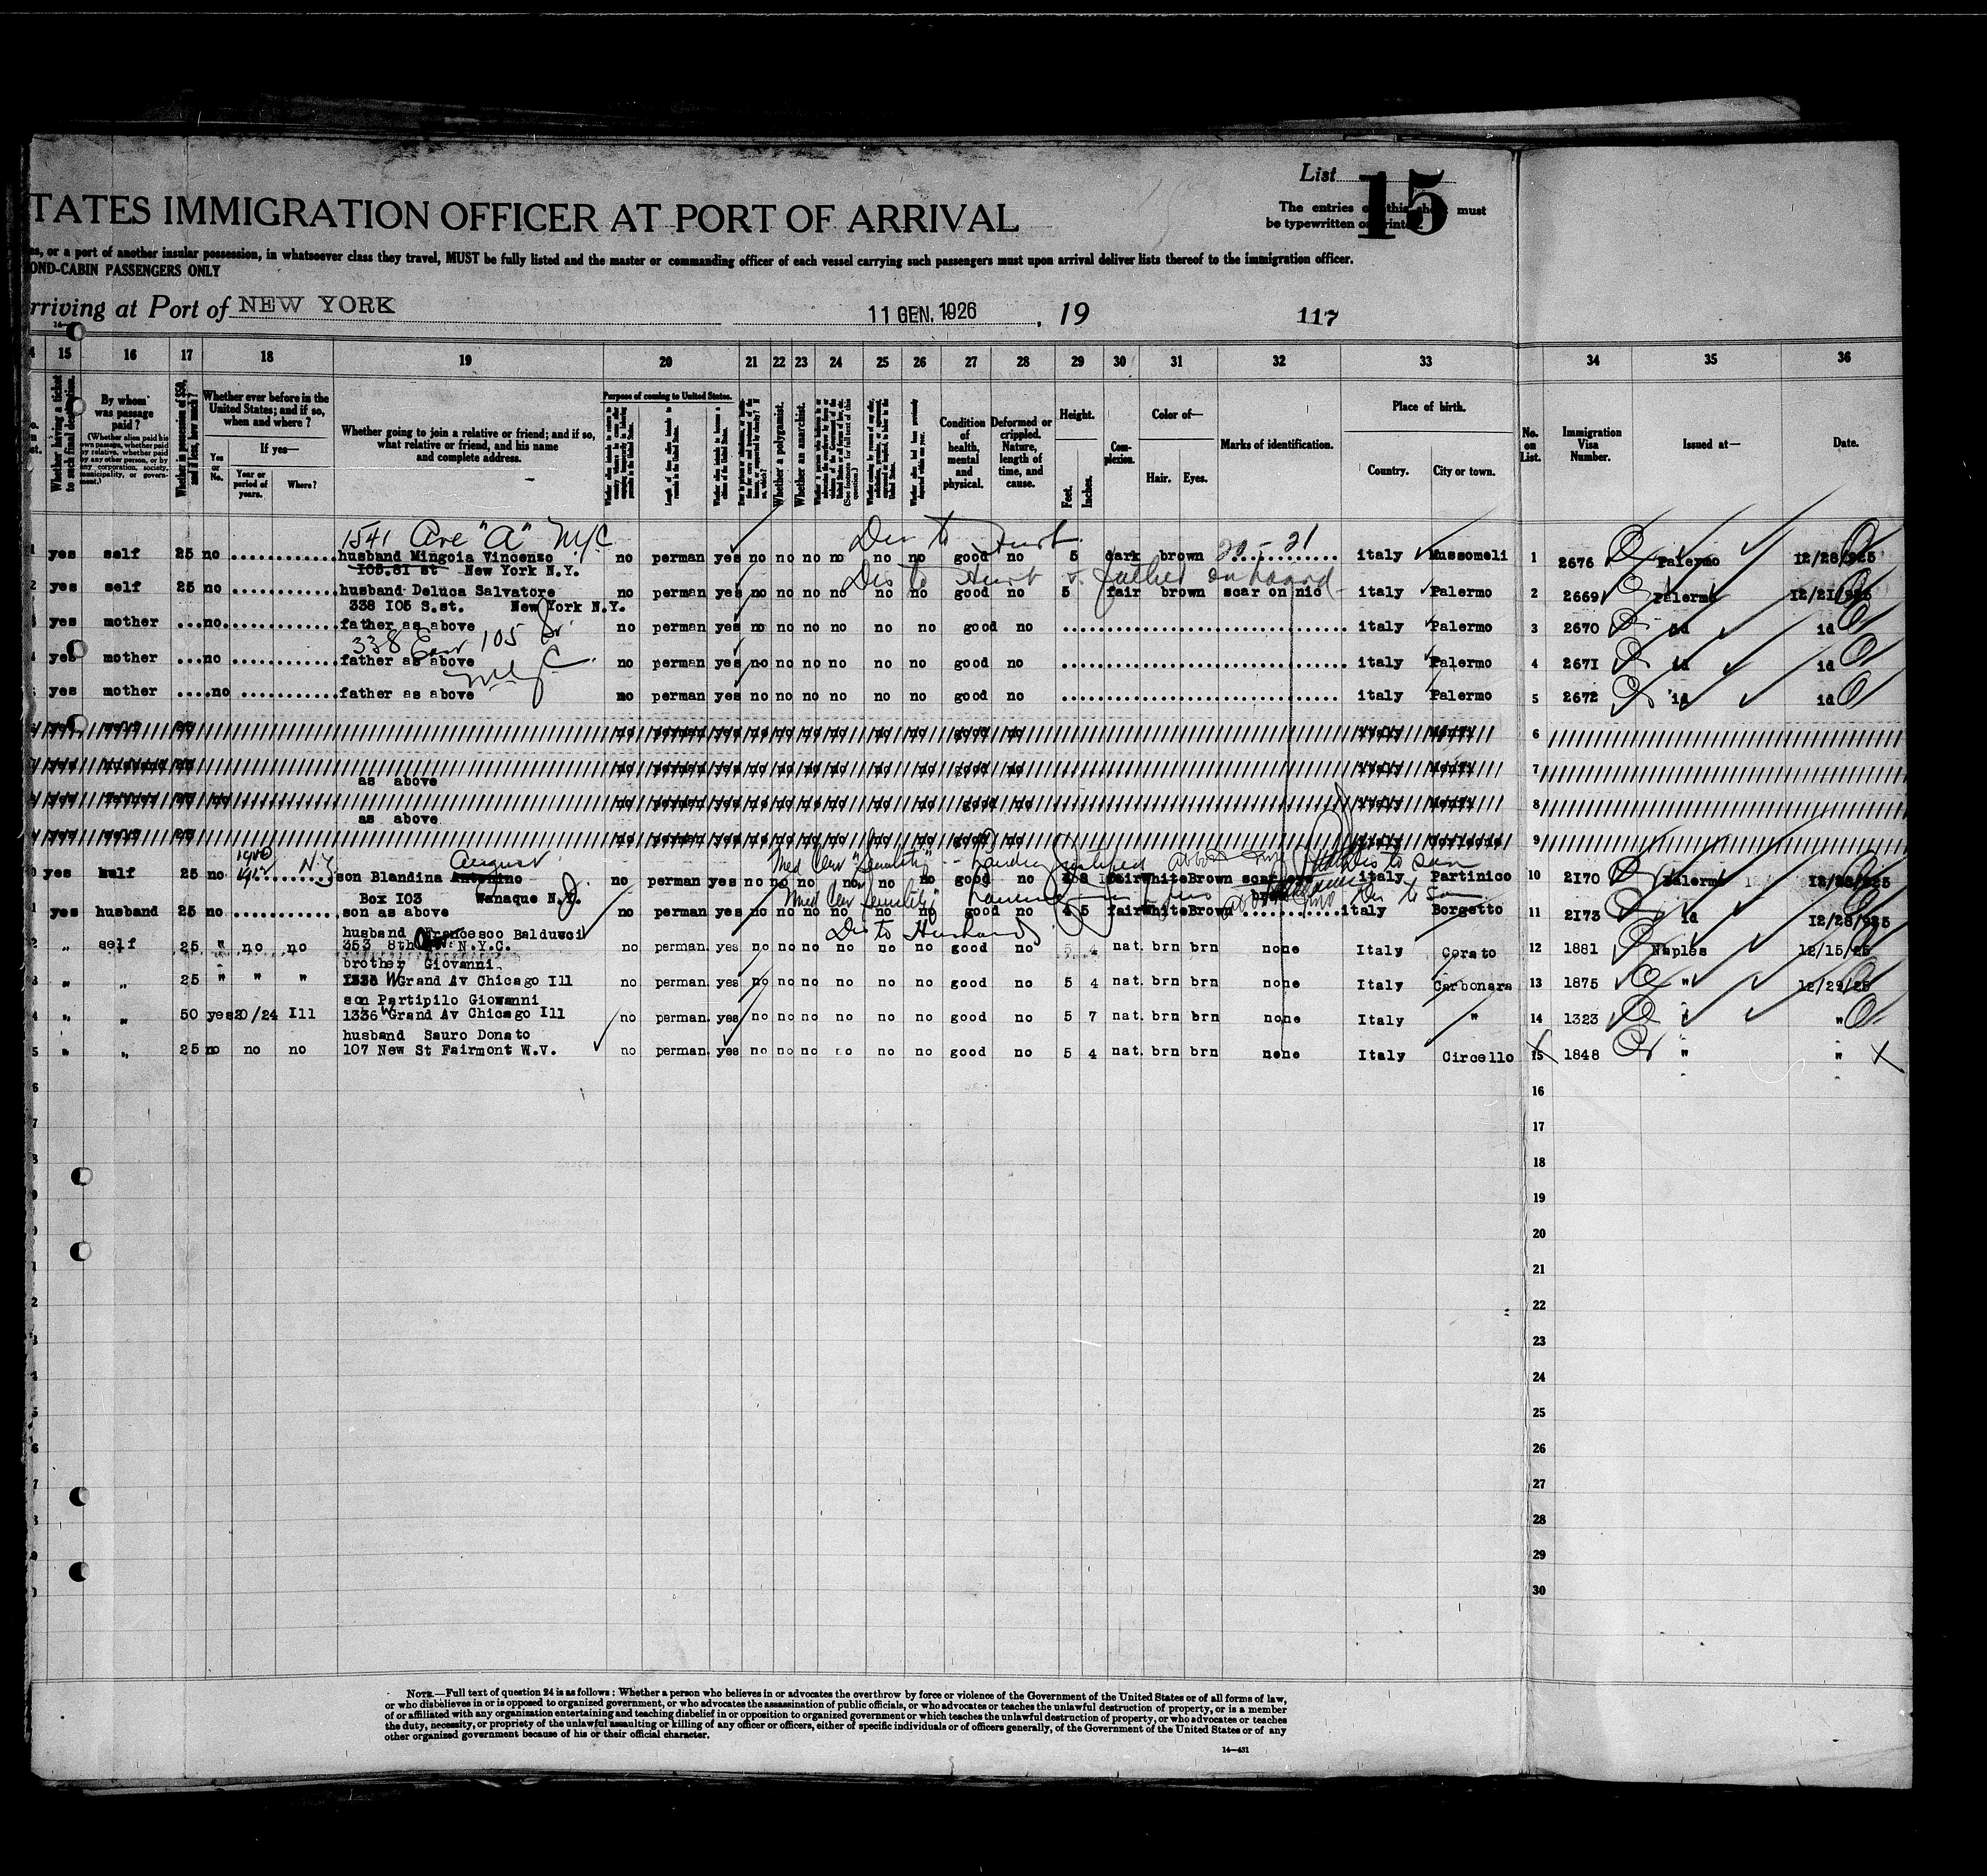 List 15
TATES IMMIGRATION OFFICER AT PORT OF ARRIVAL
The entries on this sheet must
be typewritten or printed.
es, or a port of another insular possession, in whatsoever class they travel, MUST be fully listed and the master or commanding officer of each vessel carrying such passengers must upon arrival deliver lists thereof to the immigration officer.
OND-CABIN PASSENGERS ONLY
rriving at Port of NEW YORK 11 GEN. 1926 , 19 117
15 16 17 18 19 20 21 22 23 24 25 26 27 28 29 30 31 32 33 34 35 36
Whether having a ticket to such final destination.
By whom was passage paid?
(Whether alien paid his own passage, whether paid by relative, whether paid by any other person, or by any corporation, society, municipality, or government.)
Whether in possession of $50, and if less, how much?
Whether ever before in the United States; and if so, when and where?
Yes or No.
If yes—
Year or period of years.
Where?
Whether going to join a relative or friend; and if so, what relative or friend, and his name and complete address.
Purpose of coming to United States.
Whether a polygamist.
Whether an anarchist.
(See footnote for full text of this question.)
Condition of health, mental and physical.
Deformed or crippled. Nature, length of time, and cause.
Height.
Feet. Inches.
Complexion.
Color of—
Hair. Eyes.
Marks of identification.
Place of birth.
Country. City or town.
No. on List.
Immigration Visa Number.
Issued at—
Date.
1541 Ave "A" NYC
yes self 25 no husband Mingoia Vincenzo no perman yes no no no no no no good no 5 dark brown italy Mussomeli 1 2676 Palermo 12/28/925
105.81 st New York N.Y.
yes self 25 no husband Deluca Salvatore no perman yes no no no no no no good no 5 fair brown scar on nic italy Palermo 2 2669 Palermo 12/21/925
338 105 S.st. New York N.Y.
yes mother no father as above no perman yes no no no no no no good no italy Palermo 3 2670 id id
338 East 105 St.
yes mother no father as above no perman yes no no no no no no good no italy Palermo 4 2671 id id
NYC
yes mother no father as above no perman yes no no no no no no good no italy Palermo 5 2672 id id
yes self 25 no perman yes no no no no no no good no italy Menfi 6
yes husband 25 no perman yes no no no no no no good no italy Menfi 7
as above
yes 25 no no perman yes no no no no no no good no italy Menfi 8
as above
yes self 25 no perman yes no no no no no no good no italy Corleone 9
August
yes self 25 no N.Y. son Blandina Antonino no perman yes no no no no no no good no 4 8 fair White Brown italy Partinico 10 2170 Palermo 12/28/925
Box 103 Wanaque N.J.
yes husband 25 no son as above no perman yes no no no no no no good no 4 5 fair White Brown italy Borgetto 11 2173 id 12/28/925
husband Francesco Balducci Dis to Husband
" self 25 " no no 353 8th N.Y.C. no perman. yes no no no no no no good no 5 4 nat. brn brn none Italy Corato 12 1881 Naples 12/15/25
brother Giovanni
" " 25 " " " 1336 W Grand Av Chicago Ill no perman. yes no no no no no no good no 5 4 nat. brn brn none Italy Carbonara 13 1875 " 12/29/25
son Partipilo Giovanni
" " 50 yes 20/24 Ill 1336 W Grand Av Chicago Ill no perman. yes no no no no no no good no 5 7 nat. brn brn none Italy " 14 1323 " "
husband Sauro Donato
" " 25 no no no 107 New St Fairmont W.V. no perman. yes no no no no no no good no 5 4 nat. brn brn none Italy Circello 15 1848 " "
16
17
18
19
20
21
22
23
24
25
26
27
28
29
30
NOTE.—Full text of question 24 is as follows: Whether a person who believes in or advocates the overthrow by force or violence of the Government of the United States or of all forms of law,
or who disbelieves in or is opposed to organized government, or who advocates the assassination of public officials, or who advocates or teaches the unlawful destruction of property, or is a member
of or affiliated with any organization entertaining and teaching disbelief in or opposition to organized government or which teaches the unlawful destruction of property, or who advocates or teaches
the duty, necessity, or propriety of the unlawful assaulting or killing of any officer or officers, either of specific individuals or of officers generally, of the Government of the United States or of any
other organized government because of his or their official character.
14—431